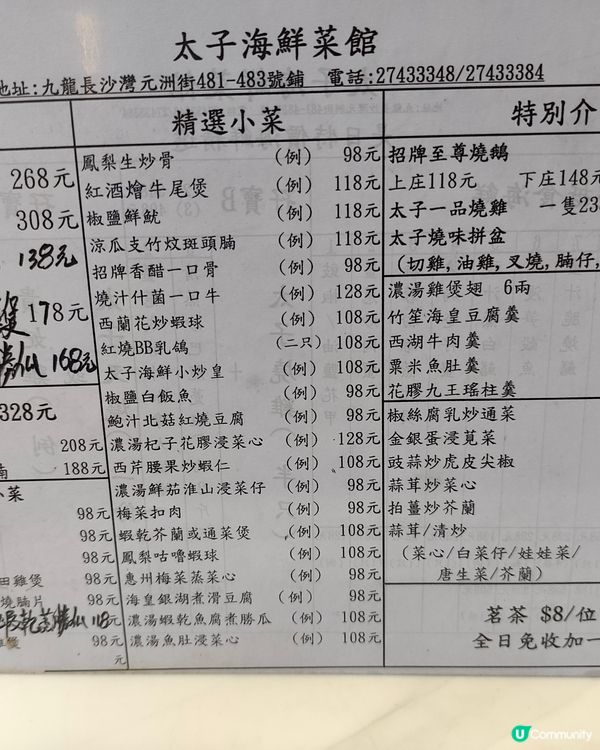 太子海鮮菜館
地址:九龍長沙灣元洲街481-483號鋪 電話:27433348/27433384
268元
308元
138元
煲178元
168元
328元
208元
腩 188元
小菜
98元
98元
98元
田雞煲 98元
燒腩片 98元
118元
雜煲 98元
元
精選小菜
鳳梨生炒骨 (例) 98元
紅酒燴牛尾煲 (例) 118元
椒鹽鮮魷 (例) 118元
涼瓜支竹炆斑頭腩 (例) 118元
招牌香醋一口骨 (例) 98元
燒汁什菌一口牛 (例) 128元
西蘭花炒蝦球 (例) 108元
紅燒BB乳鴿 (二只) 108元
太子海鮮小炒皇 (例) 108元
椒鹽白飯魚 (例) 98元
鮑汁北菇紅燒豆腐 (例) 108元
濃湯杞子花膠浸菜心 (例) 128元
西芹腰果炒蝦仁 (例) 108元
濃湯鮮茄淮山浸菜仔 (例) 108元
梅菜扣肉 (例) 108元
蝦乾芥蘭或通菜煲 (例) 108元
鳳梨咕嚕蝦球 (例) 108元
惠州梅菜蒸菜心 (例) 98元
海皇銀湖煮滑豆腐 (例) 98元
濃湯蝦乾魚腐煮勝瓜 (例) 108元
濃湯魚肚浸菜心 (例) 108元
特別介
招牌至尊燒鵝
上庄118元 下庄148元
太子一品燒雞 一隻23
太子燒味拼盆
(切雞,油雞,叉燒,腩仔,
濃湯雞煲翅 6兩
竹笙海皇豆腐羹
西湖牛肉羹
粟米魚肚羹
花膠九王瑤柱羹
椒絲腐乳炒通菜
金銀蛋浸莧菜
豉蒜炒虎皮尖椒
蒜茸炒菜心
拍薑炒芥蘭
蒜茸/清炒
(菜心/白菜仔/娃娃菜/
唐生菜/芥蘭)
茗茶 $8/位
全日免收加一
U Community